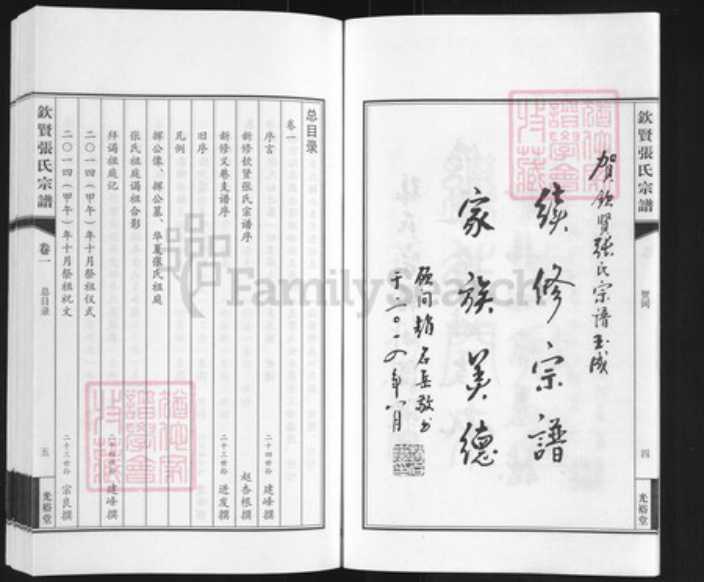 欽賢張氏宗譜
賀詞
四
光裕堂
賀欽賢張氏宗譜玉成
續修宗譜
家族美德
顧問趙石岳敬書
于二〇一四年八月
总目录
卷一
序言
二十四世孙 建峰撰
新修钦贤张氏宗谱序
赵杏根撰
新修义巷支谱序
二十三世孙 进发撰
旧序
凡例
挥公像、挥公墓、华夏张氏祖庭
张氏祖庭谒祖合影
拜谒祖庭记
建峰撰
二〇一四（甲午）年十月祭祖仪式
二〇一四（甲午）年十月祭祖祝文
二十三世孙 宗良撰
欽賢張氏宗譜
卷一
总目录
五
光裕堂
FamilySearch